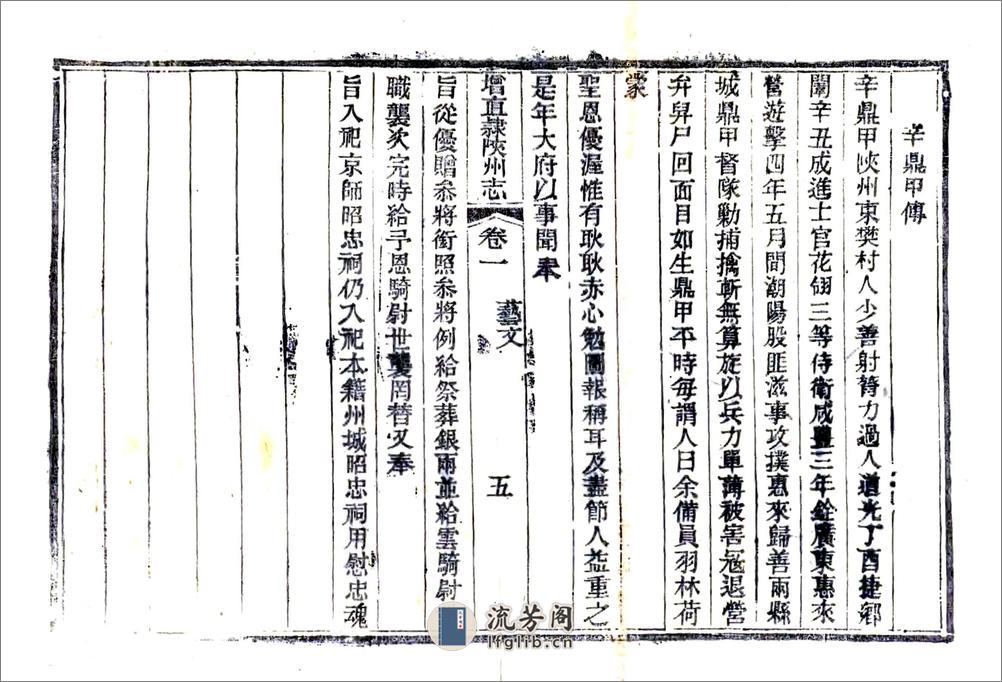 辛鼎甲傳
辛鼎甲陝州東樊村人少善射膂力過人道光丁酉捷鄉
闈辛丑成進士官花翎三等侍衛咸豐三年銓廣東惠來
營遊擊四年五月間潮陽股匪滋事攻撲惠來歸善兩縣
城鼎甲督隊勦捕擒斬無算旋以兵力單薄被害寇退營
弁舁尸回面目如生鼎甲平時每謂人曰余備員羽林荷
蒙
聖恩優渥惟有耿耿赤心勉圖報稱耳及盡節人益重之
是年大府以事聞奉
增直隸陝州志 卷一 藝文 五
旨從優贈叅將銜照叅將例給祭葬銀兩並給雲騎尉
職襲次完時給予恩騎尉世襲罔替又奉
旨入祀京師昭忠祠仍入祀本籍州城昭忠祠用慰忠魂
流芳阁
lfglib.cn